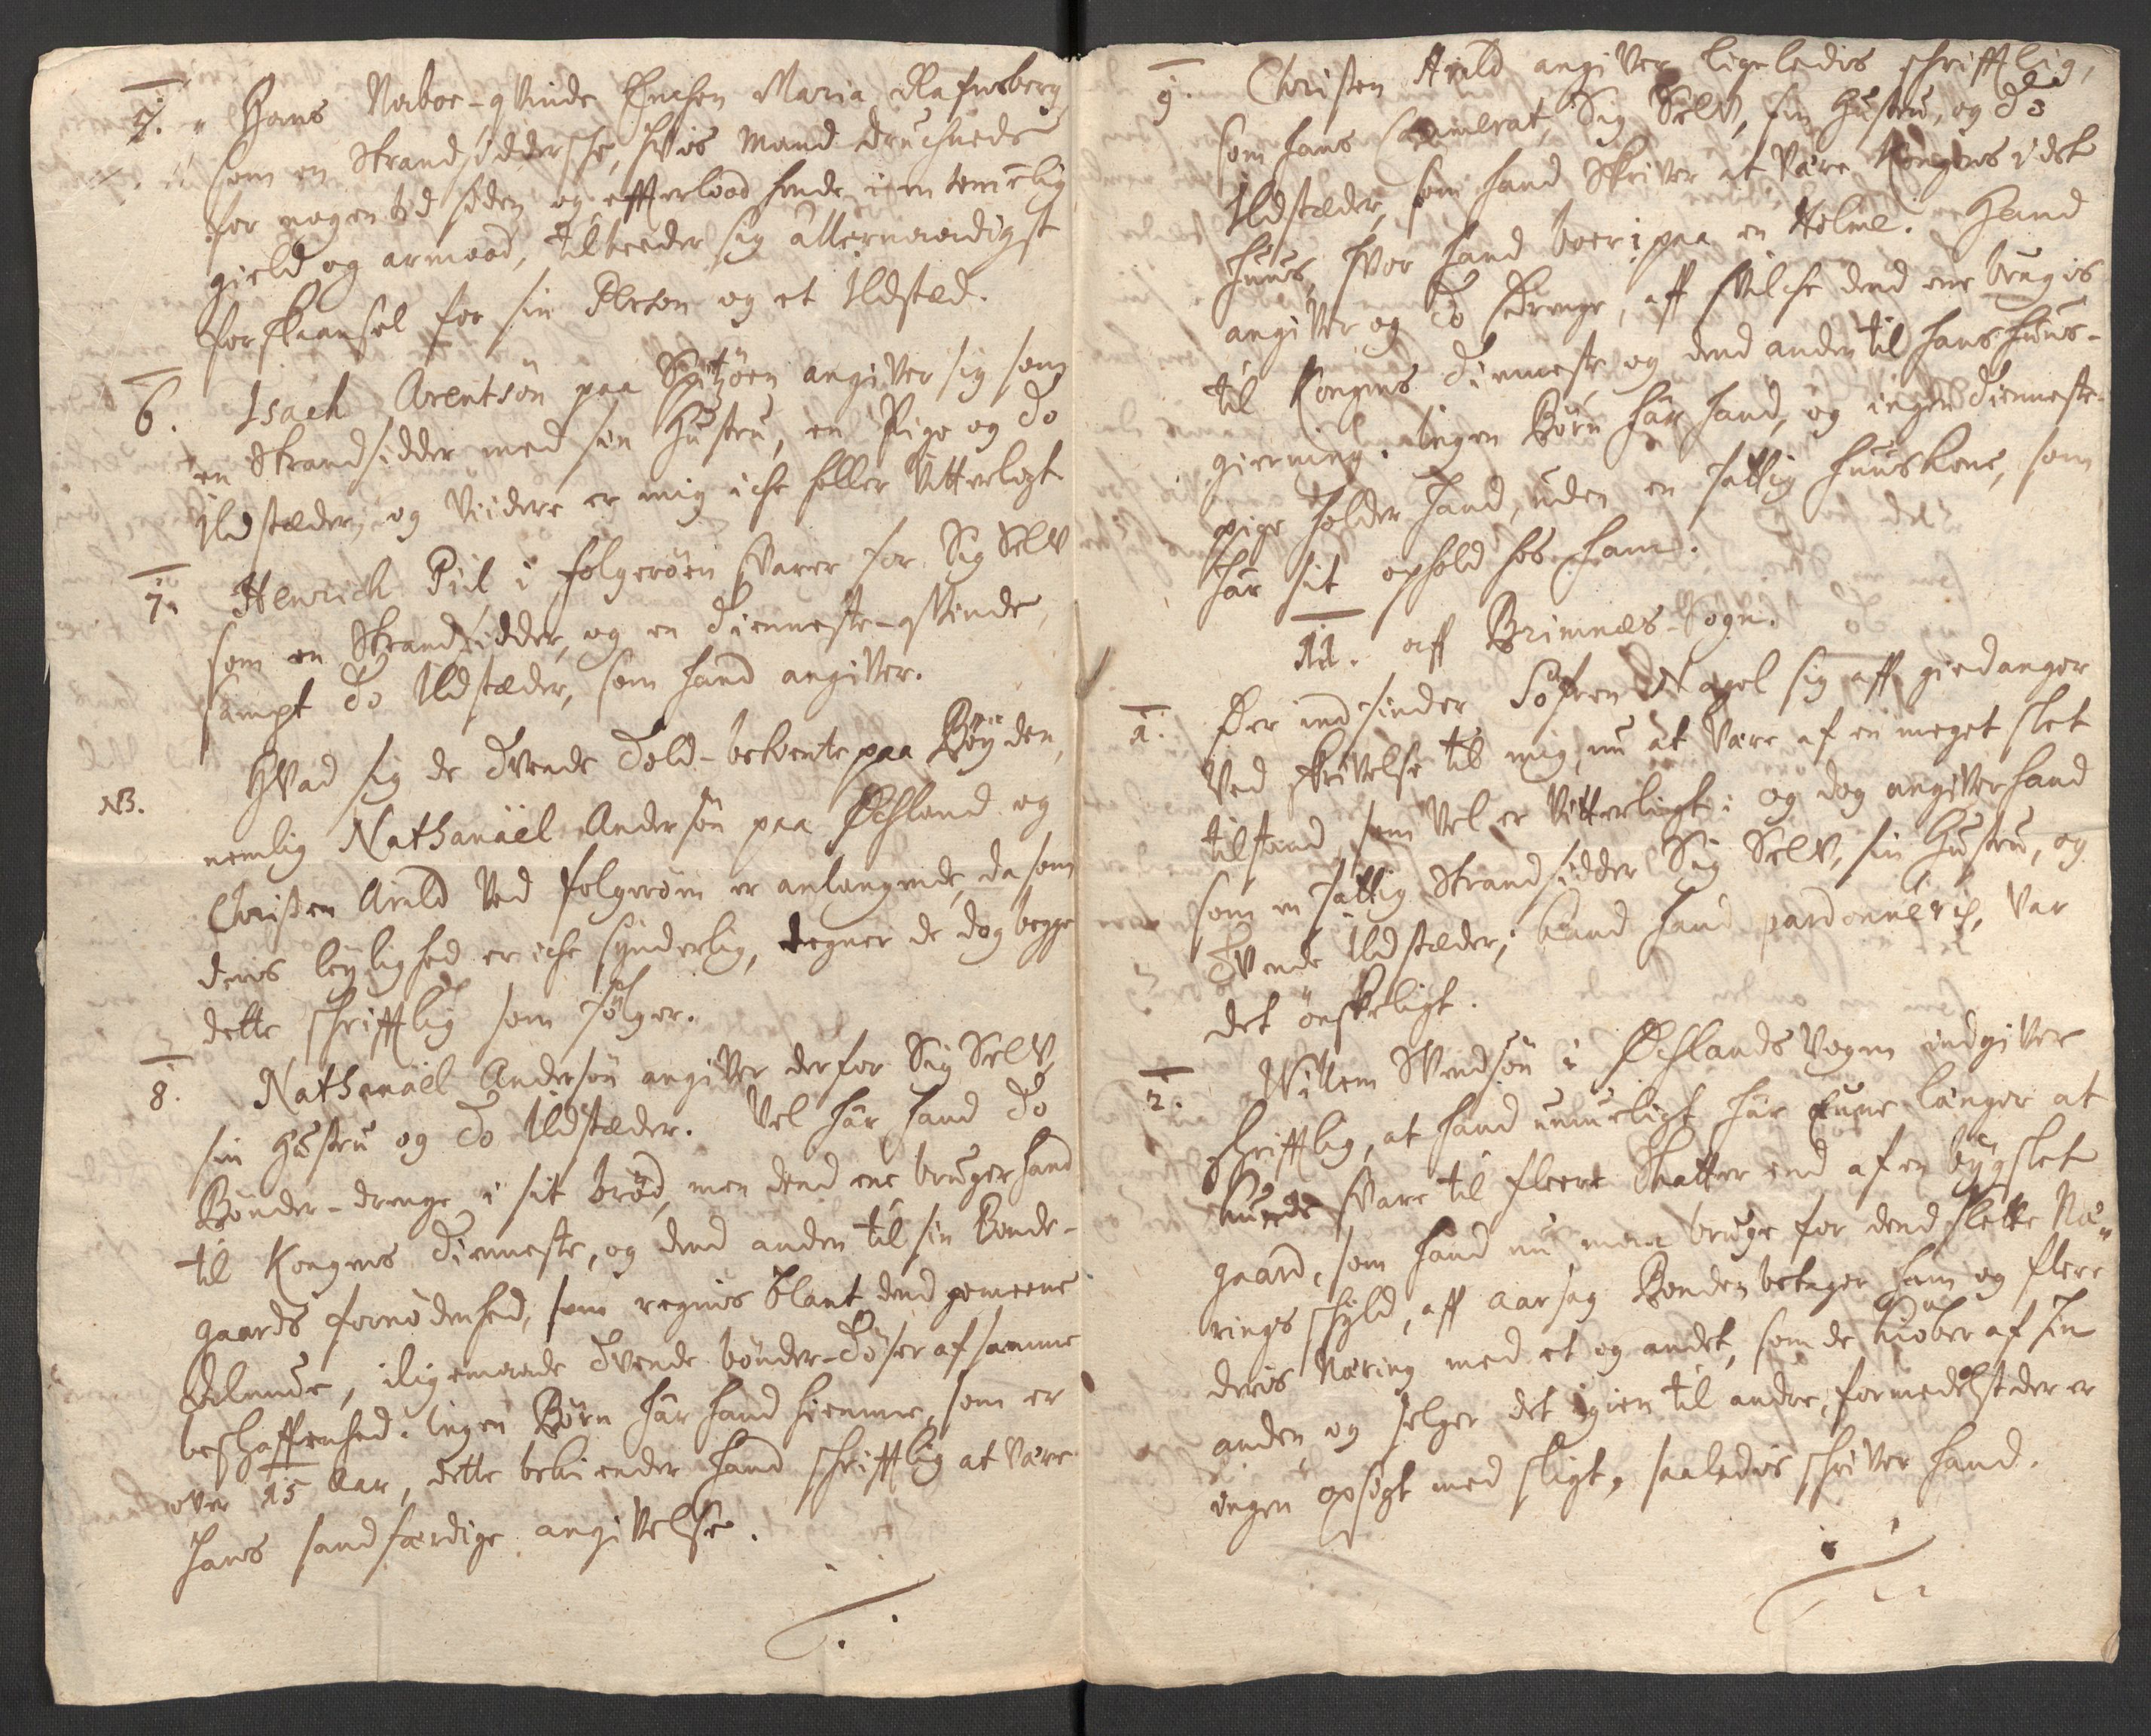 5. Hans Naboe-qvinde Enchen Maria Rafnsberg
som en Strandsiddersche, hvis Mand druchnede
for nogen tid siden og effterlood hende i en temelig
gield og armood, tilbeeder sig allernaadigst
forskaansel for sin Person og et Ildsted.
6. Isach Arentsön paa Spitzöen angiver sig som
en Strandsidder med sin Hustru, en Pige og To
Ildstæder, og Viidere er mig iche heller Vitterligt
7. Henrich Piil i Folgeröen svarer for Sig Selv
som en Strandsidder, og en Tienneste-qvinde,
sampt To Ildstæder, som hand angiver.
NB. Hvad sig de Tvende Told-betiente paa Böyden,
nemlig Nathanäel Andersön paa Öchland og
Christen Arild Ved Folgeröen er anlangende, da som
deris leylighed er iche synderlig, tegner de dog begge
dette schrifftlig som fölger.
8. Nathanäel Andersön angiver derfor Sig Selv,
sin Hustru og To Ildstæder. Vel har hand To
Bönder-drenge i sit bröd, men dend ene bruger hand
til Kongens Tienneste, og dend anden til sin Bonde-
gaards fornödenhed, som regnis blant dend gemeene
Almue, iligemaade Tvende bönder-Töser af samme
beschaffenhed. Ingen Börn har hand hiemme, som er
over 15 Aar, dette bekiender hand schrifftlig at være
hans sandfærdige angivelse.
9. Christen Arild angiver ligeledis schrifftlig,
som hans Camerat, Sig Selv, sin Hustru, og To
Ildstæder, som hand skriver at være Kongens i det
huus, hvor hand boer i paa en Holme. Hand
angiver og To Drenge, aff hvilche dend ene brugis
til Kongens Tienneste og dend anden til hans huus-
gierning. Ingen Börn har hand, og ingen Tienneste-
pige holder hand, uden en fattig huuskone, som
har sit ophold hos ham.
11. aff Brimnæs-Sogn.
1. Der indfinder Söfren Nagel sig aff giedanger
Ved skrivelse til mig, nu at være af en meget slet
tilstand, som vel er Vitterligt: og dog angiver hand
som en fattig Strandsidder Sig Selv, sin Hustru, og
Tvende Ildstæder; kand hand pardonneris, var
det önskeligt.
2. Willem Svendsön i Öchlands Vogen indgiver
schrifftlig, at hand umueligt har Eune länger at
kunde svare til fleere Skatter end af en bygslet
gaard, som hand nu maa bruge for dend slette Næ-
rings skyld, aff aarsag Bonden betager ham og flere
deris Næring med et og andet, som de kiöber af hin
anden og selger det igien til andre, formedelst der er
ingen opsigt med sligt, saaledis schriver hand.